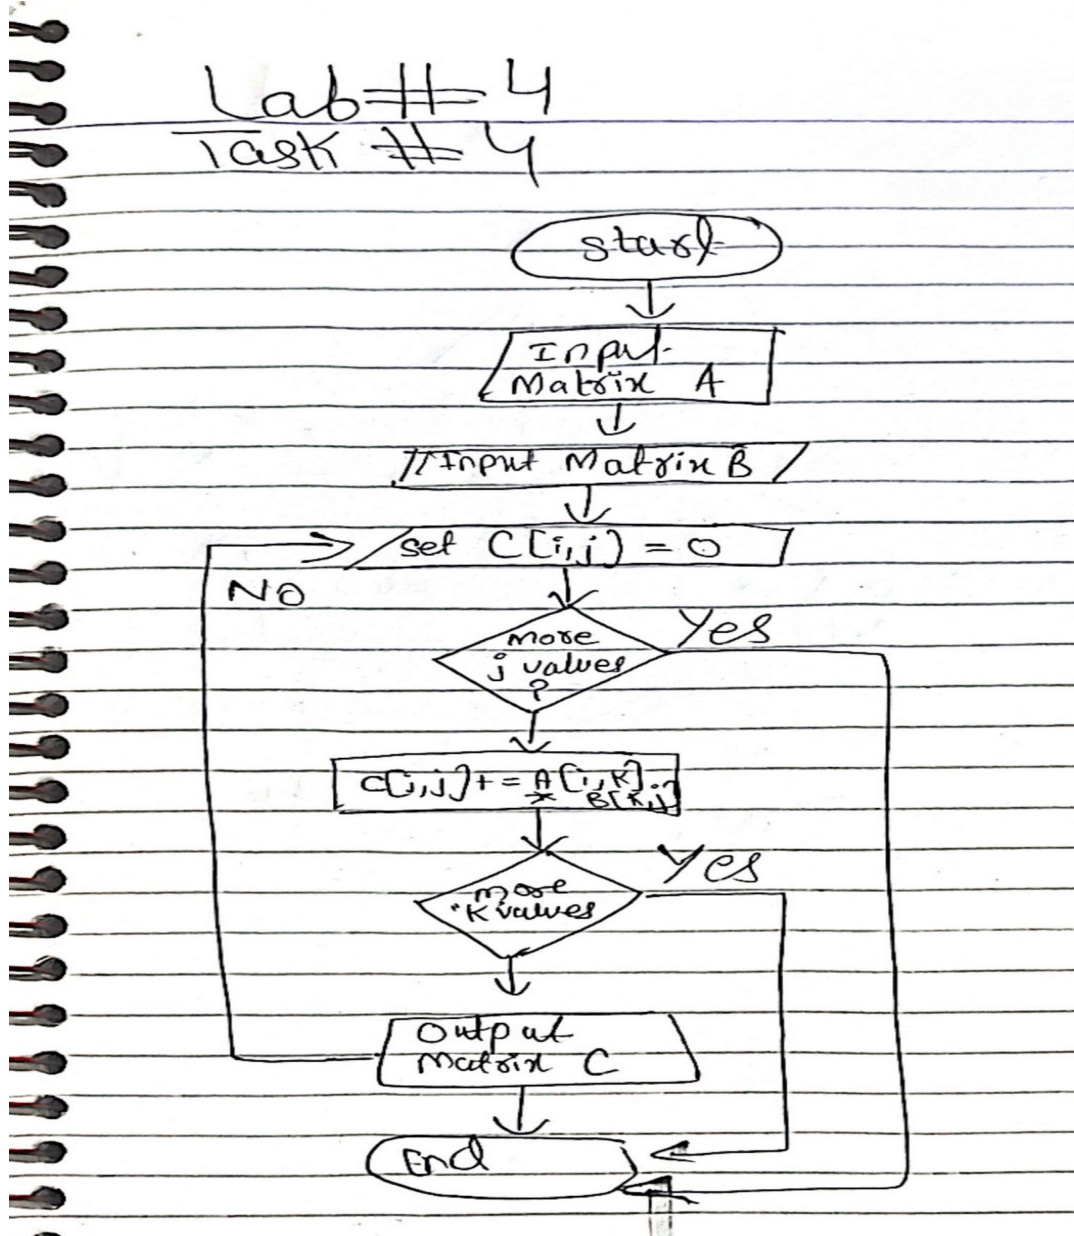 Lab # 4
Task # 4
Start
Input
Matrix A
Input Matrix B
set C[i,j) = 0
NO
more
j values
?
Yes
C[i,j] + = A [i,K]
* B[K,j]
more
K values
Yes
Output
Matrix C
End